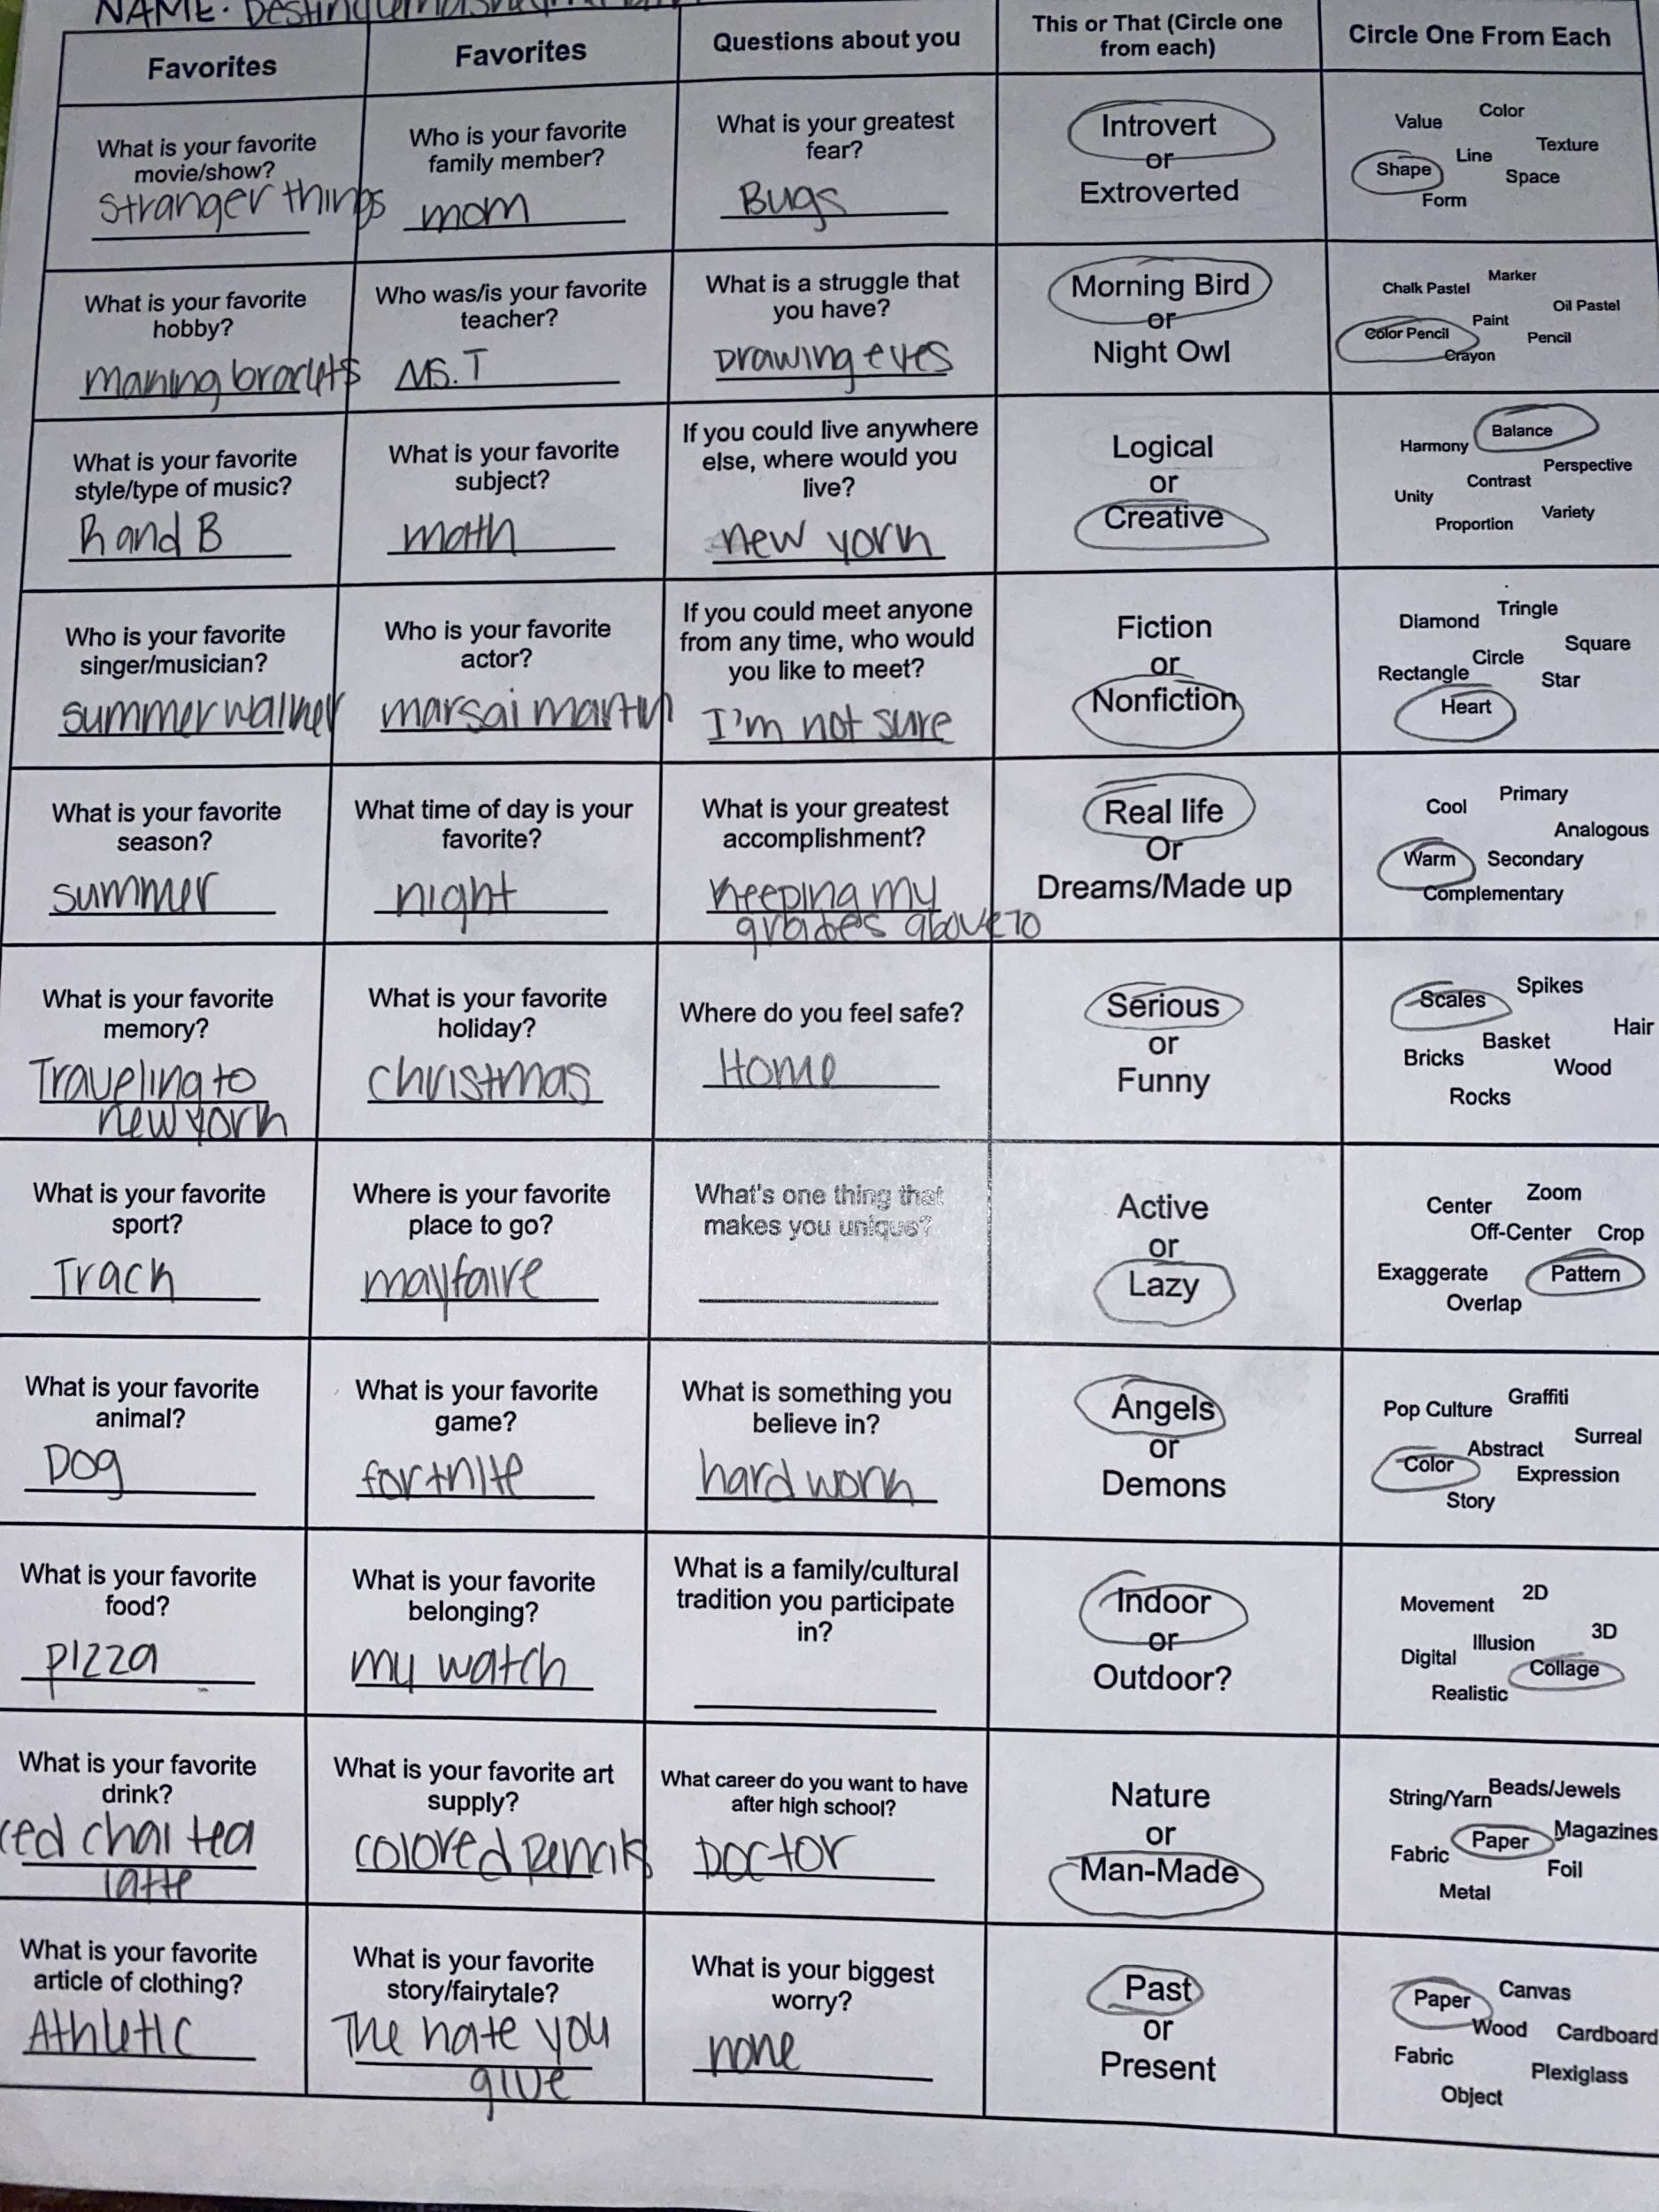 NAME: Destiny
Favorites
Favorites
Questions about you
This or That (Circle one
from each)
Circle One From Each
What is your favorite
movie/show?
stranger things
Who is your favorite
family member?
mom
What is your greatest
fear?
Bugs
Introvert
or
Extroverted
Value Color
Texture
Line
Shape
Space
Form
What is your favorite
hobby?
making braclets
Who was/is your favorite
teacher?
MS. T
What is a struggle that
you have?
Drawing eyes
Morning Bird
or
Night Owl
Marker
Chalk Pastel
Oil Pastel
Paint
Color Pencil
Pencil
Crayon
What is your favorite
style/type of music?
R and B
What is your favorite
subject?
math
If you could live anywhere
else, where would you
live?
new york
Logical
or
Creative
Balance
Harmony
Perspective
Contrast
Unity
Variety
Proportion
Who is your favorite
singer/musician?
summer walker
Who is your favorite
actor?
marsai martin
If you could meet anyone
from any time, who would
you like to meet?
I'm not sure
Fiction
or
Nonfiction
Diamond Tringle
Square
Circle
Rectangle
Star
Heart
What is your favorite
season?
summer
What time of day is your
favorite?
night
What is your greatest
accomplishment?
keeping my
grades above 70
Real life
Or
Dreams/Made up
Cool Primary
Analogous
Warm Secondary
Complementary
What is your favorite
memory?
Traveling to
new york
What is your favorite
holiday?
christmas
Where do you feel safe?
Home
Serious
or
Funny
Scales Spikes
Hair
Basket
Bricks
Wood
Rocks
What is your favorite
sport?
Track
Where is your favorite
place to go?
mayfaire
What's one thing that
makes you unique?
Active
or
Lazy
Center Zoom
Off-Center Crop
Exaggerate Pattern
Overlap
What is your favorite
animal?
Dog
What is your favorite
game?
fortnite
What is something you
believe in?
hard work
Angels
or
Demons
Pop Culture Graffiti
Surreal
Abstract
Color
Expression
Story
What is your favorite
food?
pizza
What is your favorite
belonging?
my watch
What is a family/cultural
tradition you participate
in?
Indoor
or
Outdoor?
Movement 2D
3D
Illusion
Digital
Collage
Realistic
What is your favorite
drink?
ced chai tea
latte
What is your favorite art
supply?
colored pencils
What career do you want to have
after high school?
Doctor
Nature
or
Man-Made
String/Yarn Beads/Jewels
Magazines
Paper
Fabric
Foil
Metal
What is your favorite
article of clothing?
Athletic
What is your favorite
story/fairytale?
The hate you
give
What is your biggest
worry?
none
Past
or
Present
Paper Canvas
Wood Cardboard
Fabric
Plexiglass
Object